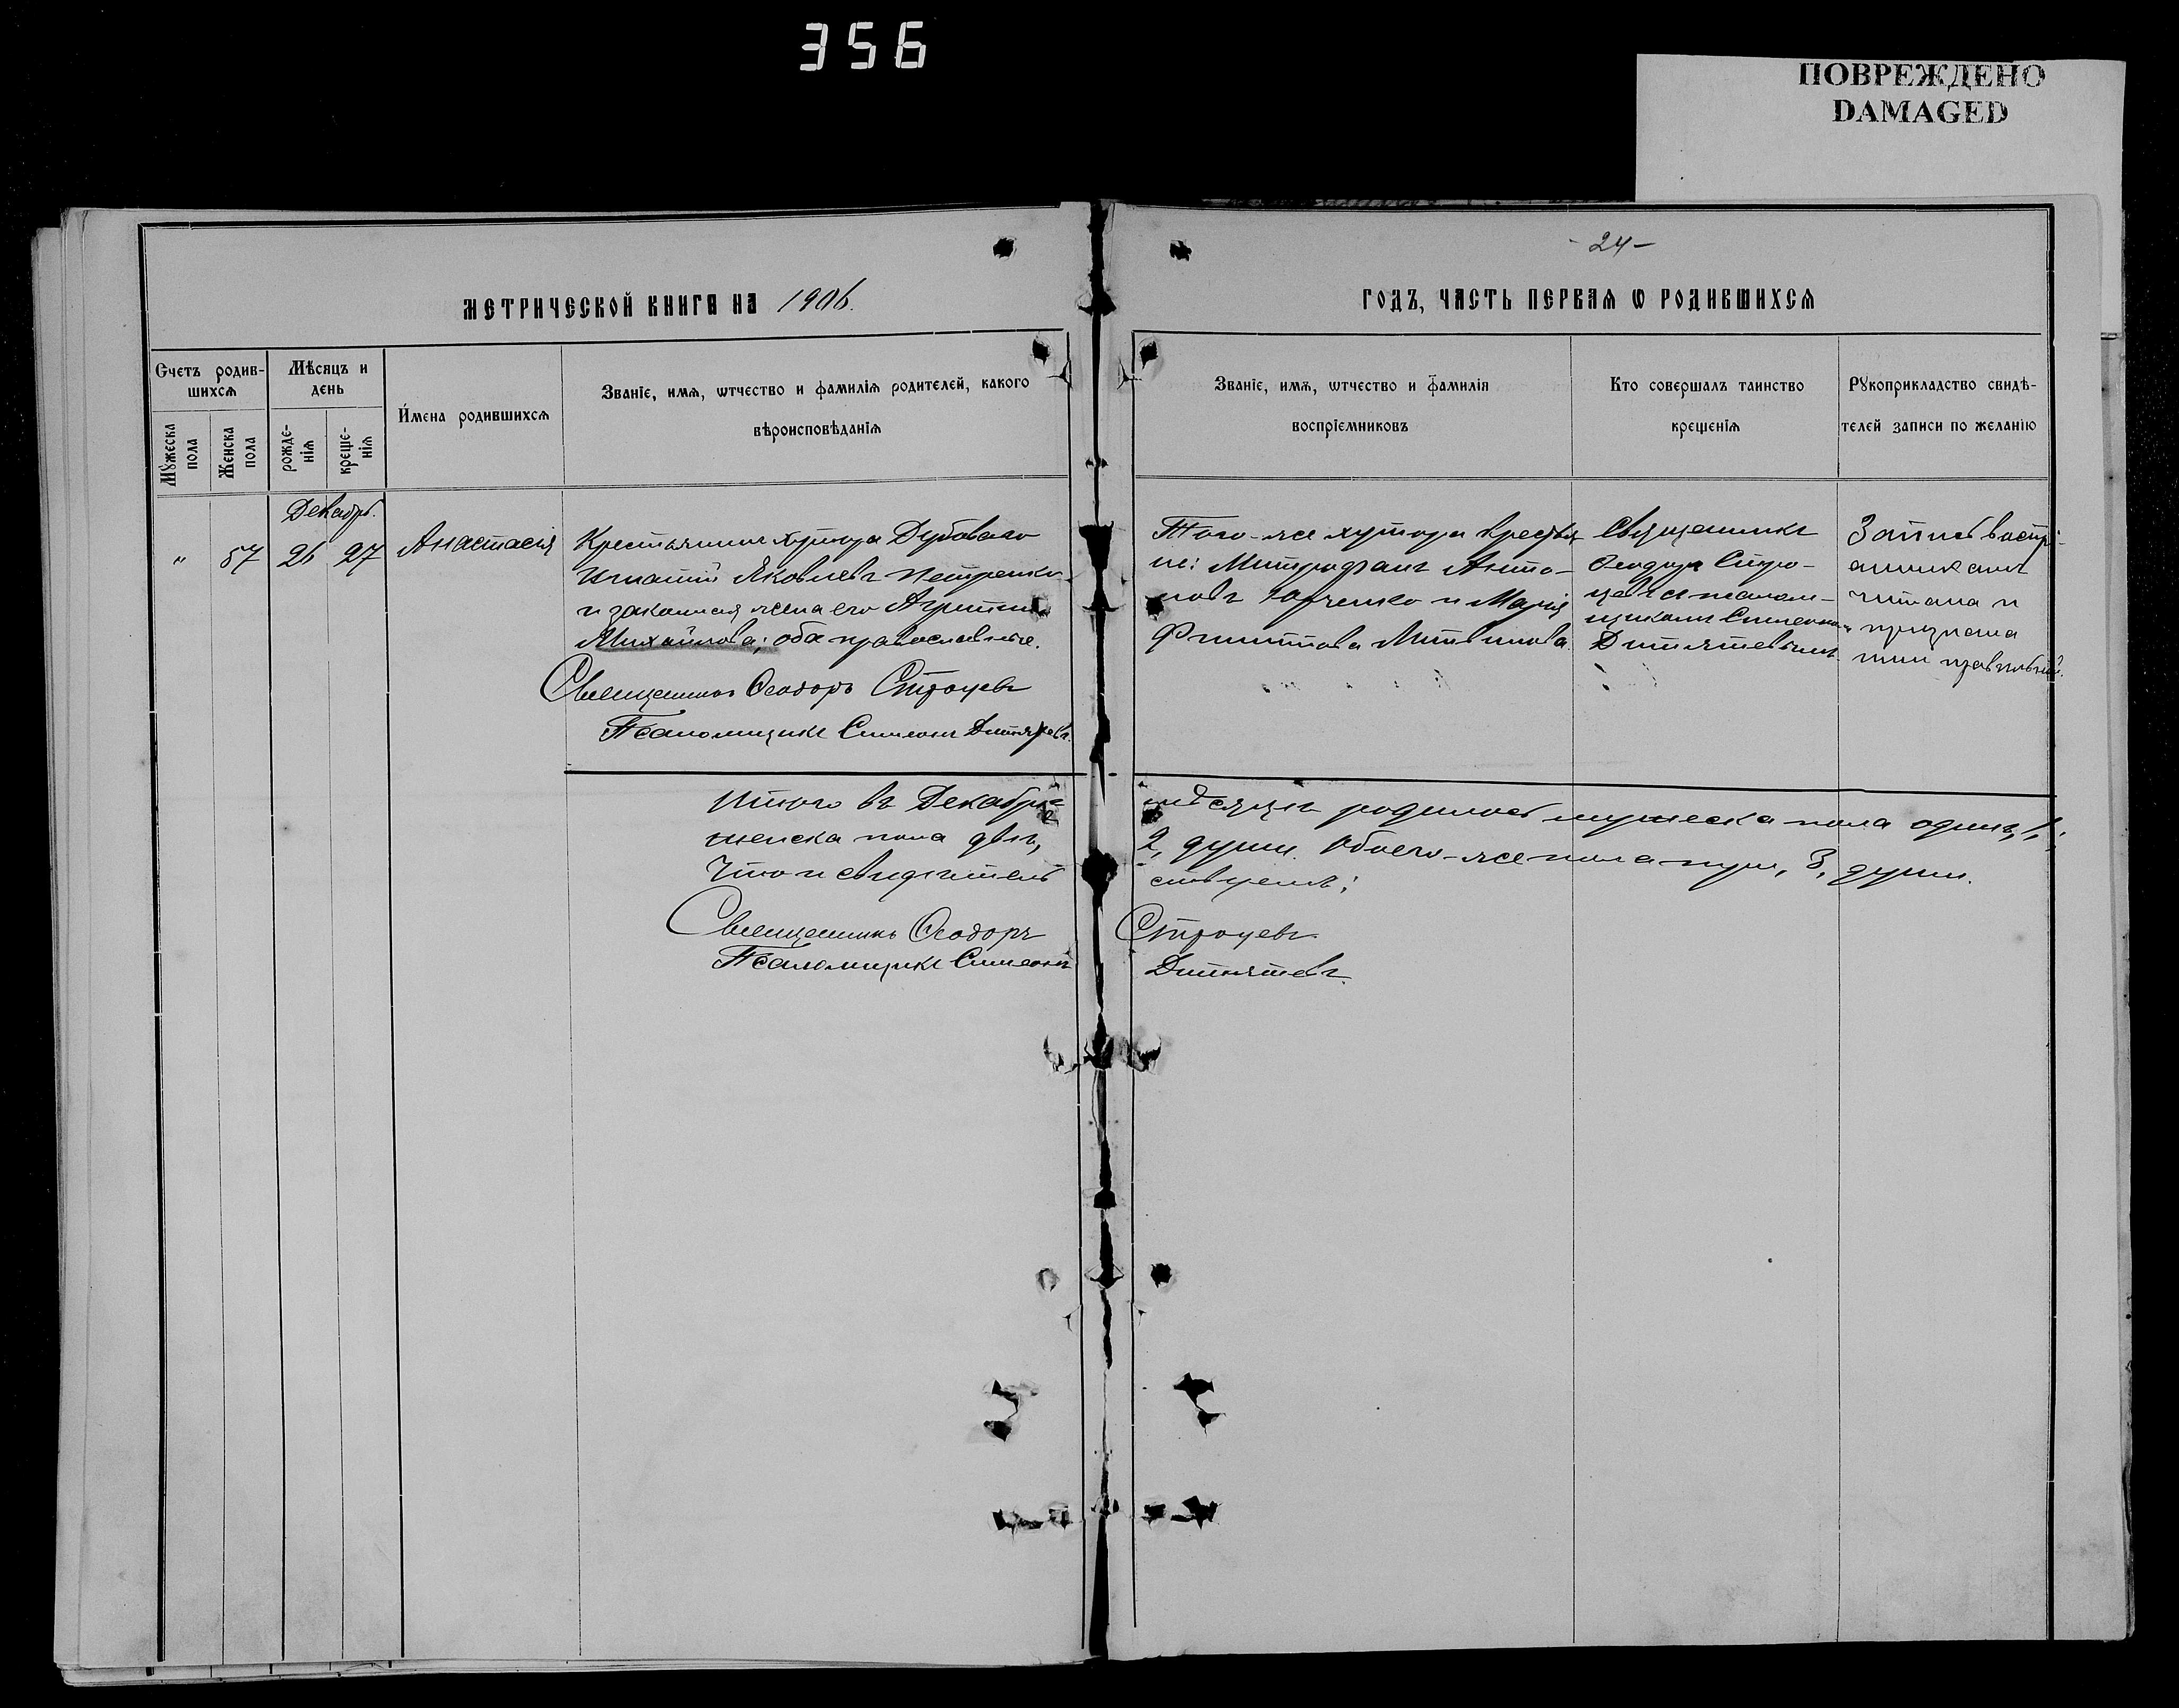 356
ПОВРЕЖДЕНО
DAMAGED
- 24 -
МЕТРИЧЕСКОЙ КНИГИ НА 1906.
ГОДЪ, ЧАСТЬ ПЕРВАЯ Ѡ РОДИВШИХСЯ
Счетъ родив-
шихся
Мѣсяцъ и
день
Мꙋжеска
пола
Женска
пола
рожде-
нія
креще-
нія
Имена родившихся
Званіе, имя, ѡтчество и фамилія родителей, какого
вѣроисповѣданія
Званіе, имя, ѡтчество и фамилія
воспріємниковъ
Кто совершалъ таинство
крещенія
Рꙋкоприкладство свидѣ-
телей записи по желанію
Декабрь.
" 57 26 27 Анастасія
Крестьянинъ хутора Дубоваго
Игнатій Яковлевъ Петренко
и законная жена его Агриппина
Михайлова; оба православные.
Священникъ Ѳеодоръ Строцевъ
Псаломщикъ Симеонъ
Того-же хутора крестья
не: Митрофанъ Анто-
новъ Юрченко и Марія
Филиппова Литвинова.
Священникъ
Ѳеодоръ Стро-
цевъ съ псалом-
щикомъ Симеоно-
Дитятевымъ.
Запись воспрі-
читана и
признана
ими правильной.
Итого въ Декабрѣ
мѣсяцѣ родилось мужеска пола одинъ, 1,
женска пола двѣ,
2, души. Обоего-же пола три, 3, души.
Что и свидѣтель
ствуемъ:
Священникъ Ѳеодоръ
Строцевъ.
Псаломщикъ Симеонъ
Дитятевъ.